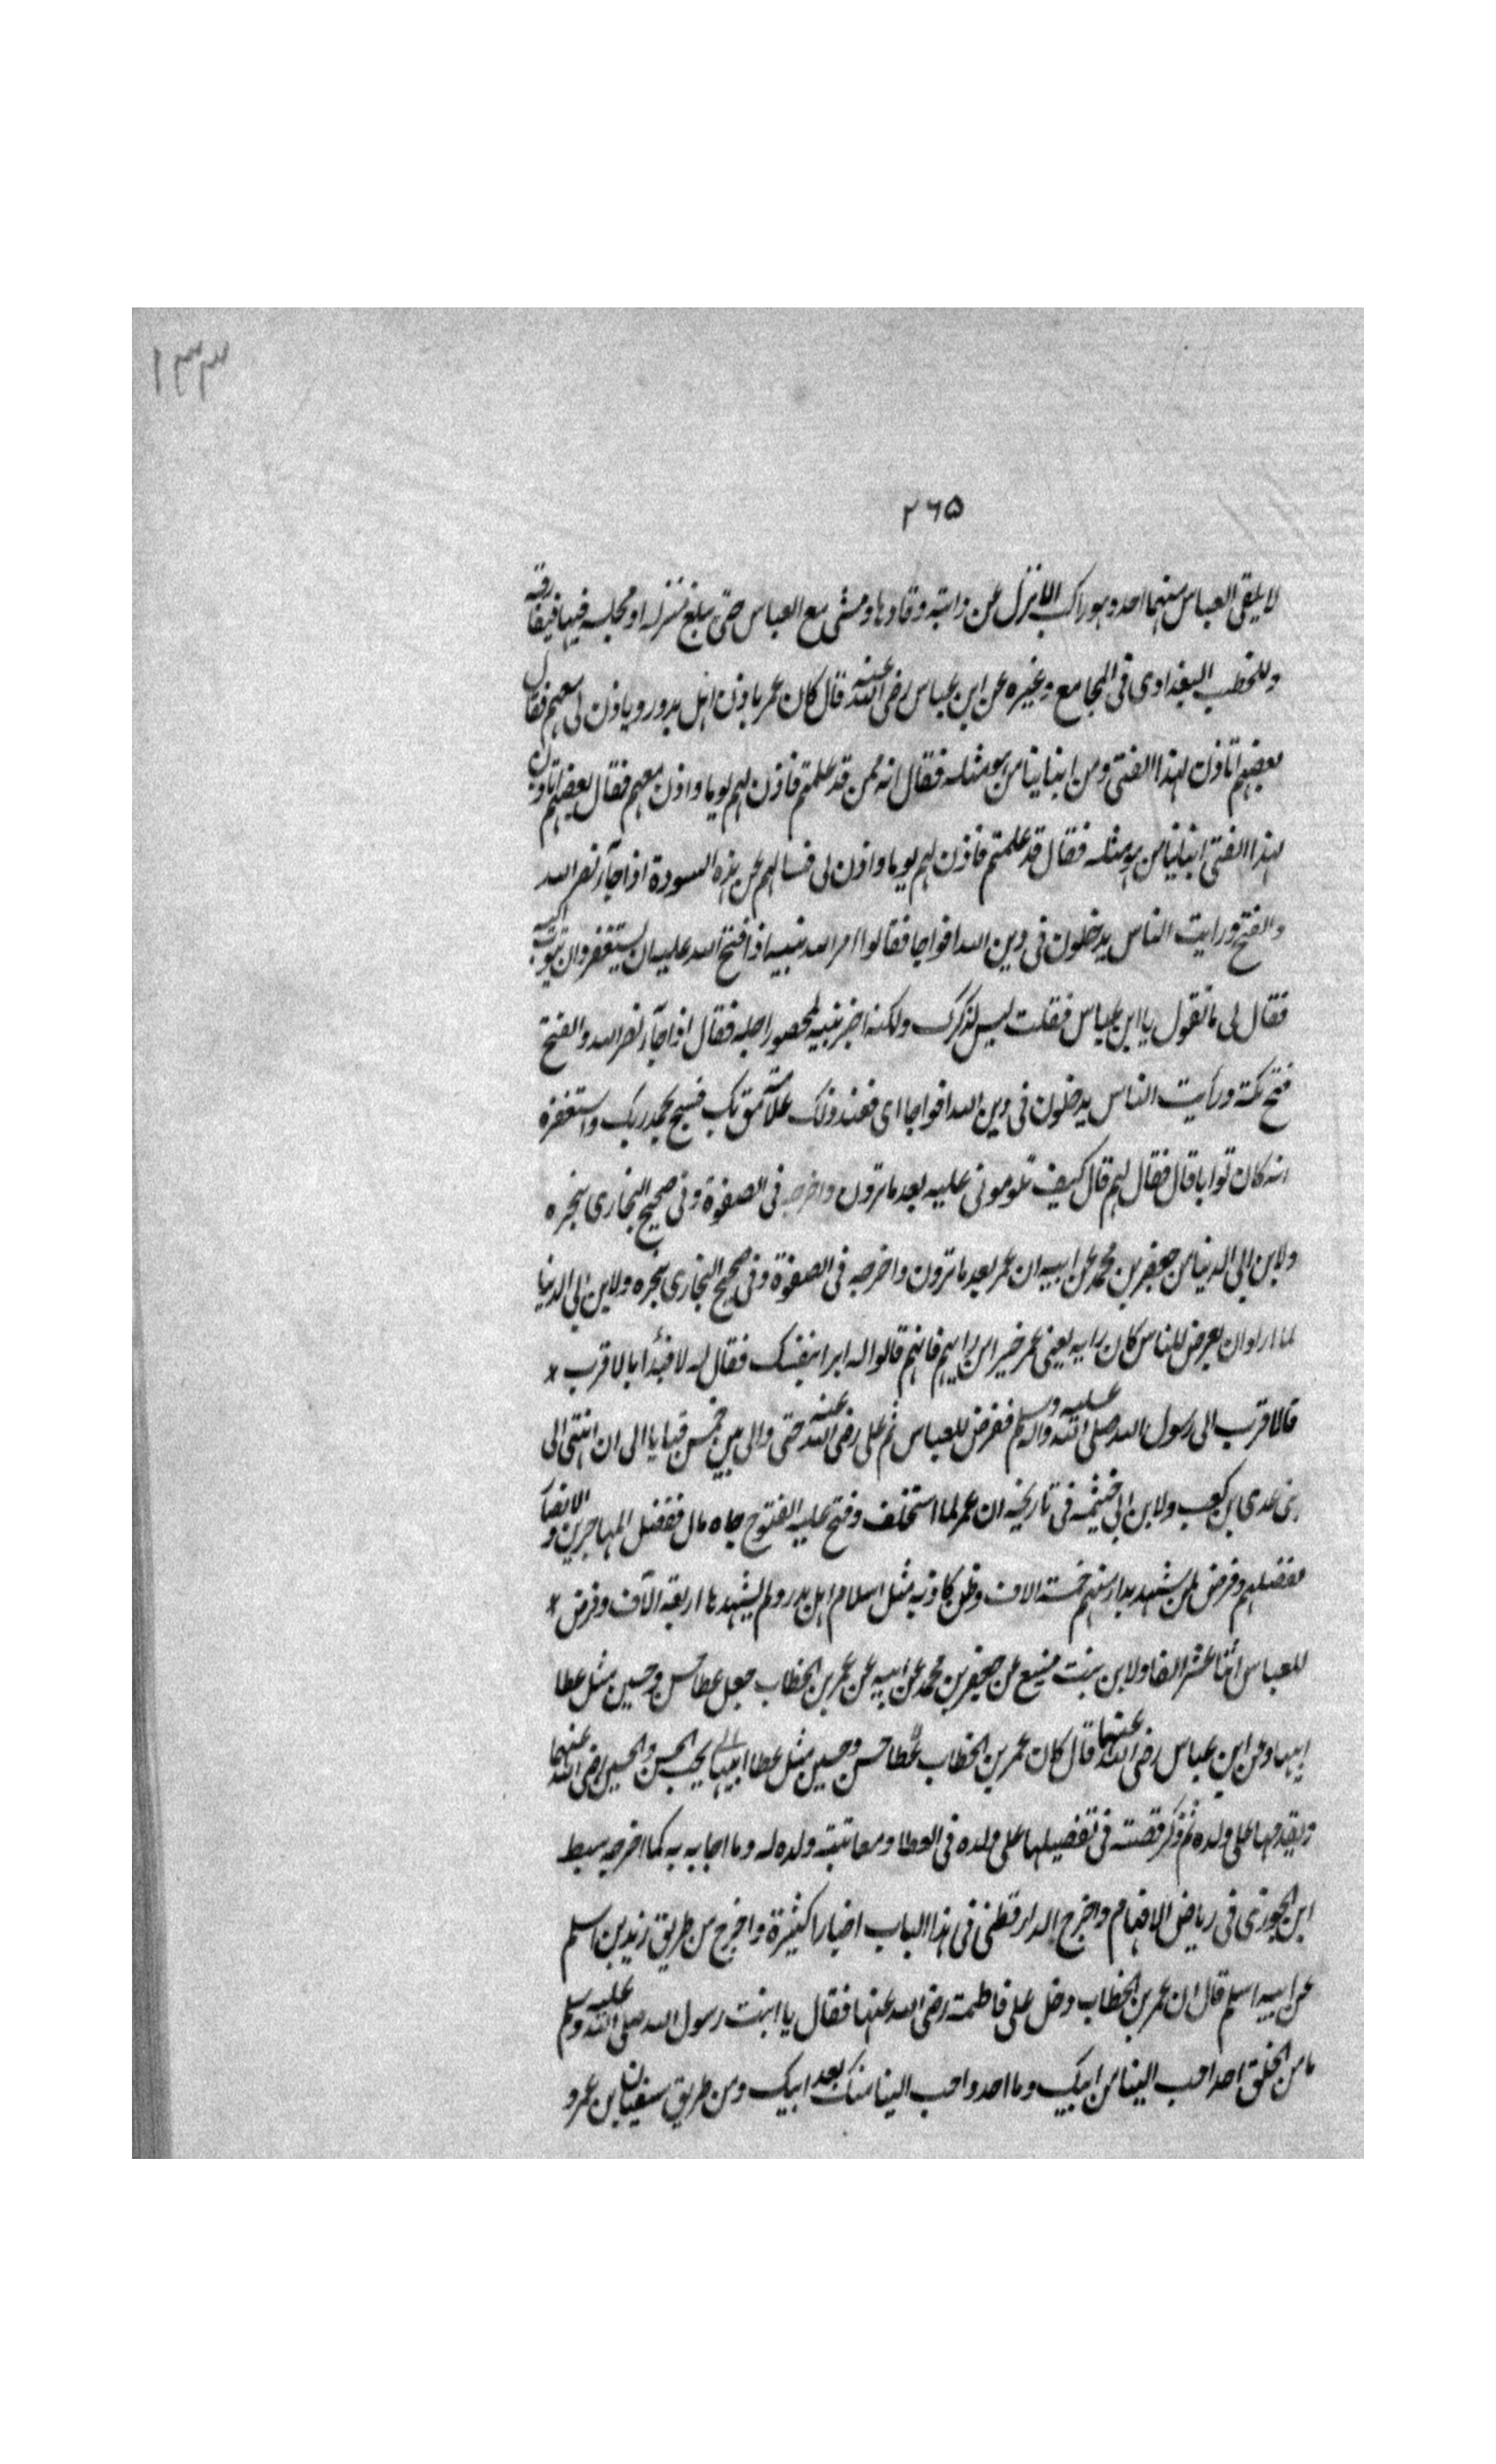 ١٣٣
٢٦٥
لا يلقى العباس منهما احد وهو راكب الا نزل عن دابته وقادها ومشى مع العباس حتى يبلغ منزله او مجلسه فيها فيفارقه
وللخطيب البغدادى فى الجامع وغيره عن ابن عباس رضى الله عنه قال كان عمر ياذن اهل بدر وياذن لى معهم فقال
بعضهم اتاذن لهذا الفتى ومن ابنائنا من هو مثله فقال انه ممن قد علمتم فاذن لهم يوما واذن معهم فقال بعضهم اتاذن
لهذا الفتى ابنائنا من هو مثله فقال قد علمتم فاذن لهم يوما واذن لى فسالهم عن هذه السورة اذا جآء نصر الله
والفتح ورايت الناس يدخلون فى دين الله افواجا فقالوا امر الله نبيه اذا فتح الله عليه ان يستغفر وان يتوب اليه
فقال لى ما تقول يا ابن عباس فقلت ليس كذلك ولكنه اخبر نبيه بحضور اجله فقال اذا جآء نصر الله والفتح
فتح مكة ورأيت الناس يدخلون فى دين الله افواجا اى فعند ذلك علامة موتك فسبح بحمد ربك واستغفره
انه كان توابا قال فقال لهم قال كيف تلومونى عليه بعد ما ترون واخرجه فى الصفوة وفى صحيح البخارى بنحره
ولابن ابى الدنيا من جعفر بن محمد عن ابيه ان عمر بعد ما ترون واخرجه فى الصفوة وفى صحيح البخارى بنحره ولابن ابى الدنيا
لما اراد ان يعرض للناس كان رايه يعنى عمر خير من رايهم فانهم قالوا له ابدا بنفسك فقال له لا فبدأ بالاقرب *
فالاقرب الى رسول الله صلى الله عليه واله وسلم ففرض للعباس ثم على رضى الله عنه حتى والى بين خمس قبايا الى ان انتهى الى
بنى عدى بن كعب ولابن ابى خيثمة فى تاريخه ان عمر لما استخلف وفتح عليه الفتوح جاه مال ففضل المهاجرين والانصار
ففضلهم وفرض لمن شهد بدرا منهم خمسة الاف ولمن كا ذبه مثل اسلام اهل بدر ولم يشهدها اربعة الآف وفرض *
للعباس اثنا عشر الفا ولابن بنت منيع عن جعفر بن محمد عن ابيه عن عمر بن الخطاب جعل عطا حسن وحسين مثل عطا
ابيهما وعن ابن عباس رضى الله عنهما قال كان عمر بن الخطاب عطا حسن وحسين مثل عطا ابيهما يحب الحسن والحسين رضى الله عنهما
ويقدمهما على ولده ثم ذكر قصته فى تفضيلهما على ولده فى العطا ومعاتبة ولده له وما اجابه به كما اخرجه سبط
ابن الجوزى فى رياض الافهام واخرج الدارقطنى فى هذا الباب اخبارا كثيرة واخرج من طريق زيد بن اسلم
عن ابيه اسلم قال ان عمر بن الخطاب دخل على فاطمة رضى الله عنها فقال يا ابنت رسول الله صلى الله عليه وسلم
ما من الخلق احد احب الينا من ابيك وما احد واحب الينا منك بعد ابيك ومن طريق سفيان بن عمرو